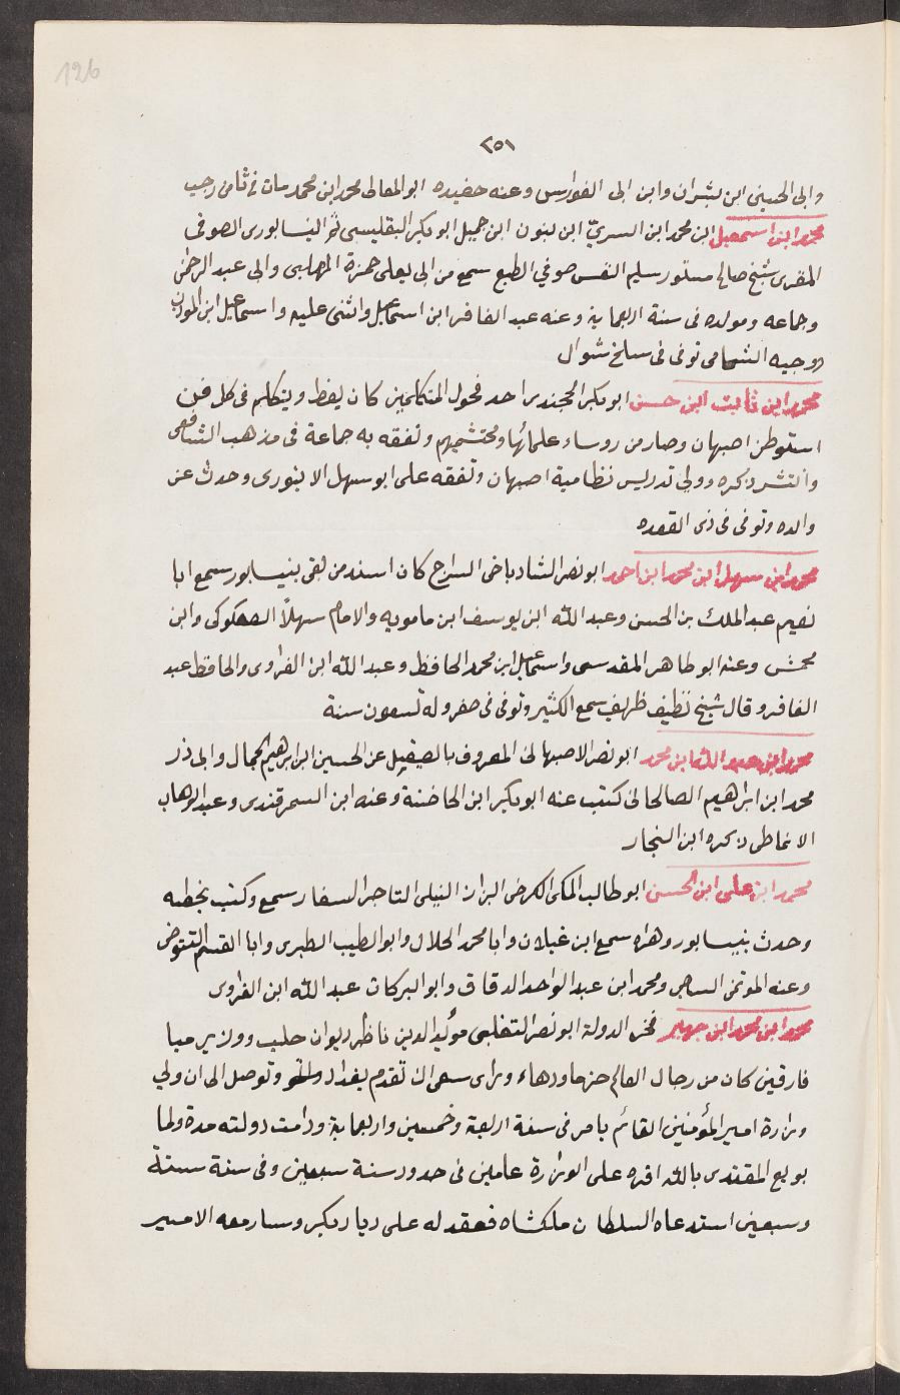 126
٢٥١
وابى الحسينى ابن بشران وابن ابى الفوارس وعنه حفيده ابوالمعالى محمد ابن محمد مات فى ثامن رجب
محمد ابن اسمعيل ابن محمد ابن السريّ ابن بنون ابن جميل ابوبكر التفليسى ثم النيسابورى الصوفى
المقرى شيخ صالح مستور سليم النفس صوفي الطبع سمع من ابى يعلى حمزة المهلبى وابى عبد الرحمن
وجماعه ومولده فى سنة اربعماية وعنه عبد الغافر ابن اسماعيل واثنى عليه واسماعيل ابن الموذن
ووجيه الشحامى توفى فى سلخ شوال
محمد ابن ثابت ابن حسن ابوبكر الخجندى احد فحول المتكلمين كان يعظ ويتكلم فى كل فن
استوطن اصبهان وصار من روساء علمائها ومحتشميهم وتفقه به جماعة فى مذهب الشافعى
وانتشر ذكره وولى تدريس نظامية اصبهان وتفقه على ابو سهل الابيوردى وحدث عن
والده وتوفى فى ذى القعده
محمد ابن سهل ابن محمد ابن احمد ابونصر الشاذياخى السراج كان اسند من بقى بنيسابور سمع ابا
نعيم عبد الملك بن الحسن وعبد الله ابن يوسف ابن مامويه والامام سهلاً الصعلوكى وابن
محمش وعنه ابو طاهر المقدسى واسماعيل ابن محمد الحافظ وعبد الله ابن الفراوى والحافظ عبد
الغافر وقال شيخ نظيف ظريف سمع الكثير وتوفى فى صفر وله تسعون سنة
محمد ابن عبد الله ابن محمد ابونصر الاصبهانى المعروف بالصيقيل عن الحسين ابن ابراهيم الجمال وابى ذر
محمد ابن ابراهيم الصالحانى كتب عنه ابوبكر ابن الخاضنة وعنه ابن السمرقندى وعبد الوهاب
الانماطى ذكره ابن النجار
محمد ابن على ابن الحسن ابو طالب المكى الكرخى البزاز النيلى التاجر السفار سمع وكتب بخطه
وحدث بنيسابور وهراه سمع ابن غيلان وابا محمد الخلال وابو الطيب الطبرى وابا القسم التنوخى
وعنه الموتمن الساجى ومحمد ابن عبد الواحد الدقاق وابو البركات عبد الله ابن الفراوى
محمد ابن محمد ابن جهير فخر الدولة ابونصر التغلبى مؤيد الدين ناظر ديوان حلب ووزير ميا
فارقين كان من رجال العالم حزما ودهاء ورأى سعى الى ان تقدم ببغداد وتوصل الى ان ولي
وزارة امير المؤمنين القائم بامر فى سنة اربعة وخمسين واربعماية ودامت دولته مدة ولما
بويع المقتدى بالله اقره على الوزارة عامين فى حدود سنة سبعين وفى سنة ستة
وسبعين استدعاه السلطان ملكشاه فعقد له على ديار بكر وسار معه الامير